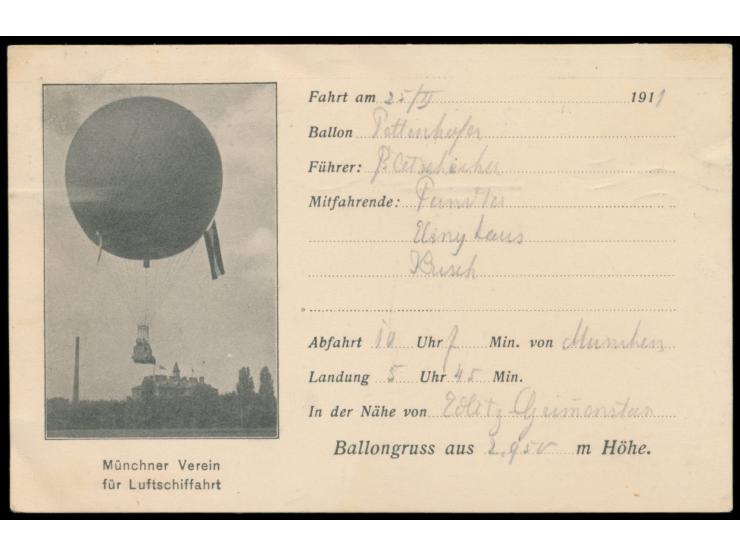 Fahrt am 25/II 1911
Ballon Pettenkofer
Führer:
Mitfahrende:
Krisch
Abfahrt 10 Uhr 7 Min. von München
Landung 5 Uhr 45 Min.
In der Nähe von Edlitz
Ballongruss aus 2.950 m Höhe.
Münchner Verein
für Luftschiffahrt